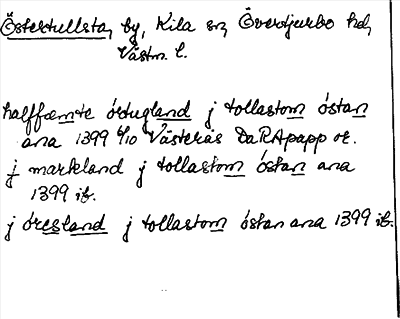 Östertullsta, by, Kila sn, Övertjurbo hd,
Västm. l.
halffæmte örtugland j tollastom östan
ana 1399 6/10 Västerås DaRApapp or.
j markland j tollastom östan ana
1399 ib.
j öresland j tollastom östan ana 1399 ib.